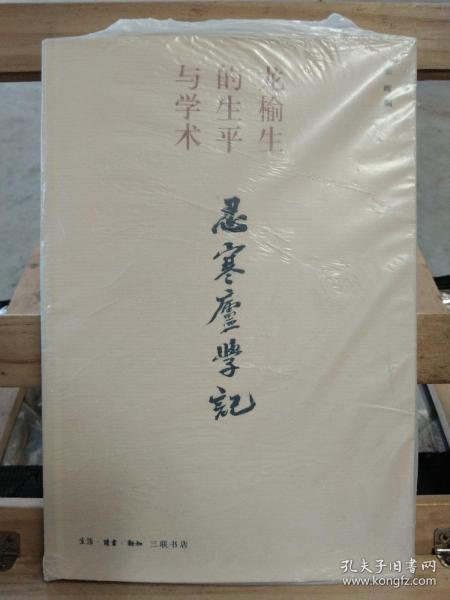 龙榆生
的生平
与学术
忍寒廬學記
生活·讀書·新知 三联书店
孔夫子旧书网
www.kongfz.com